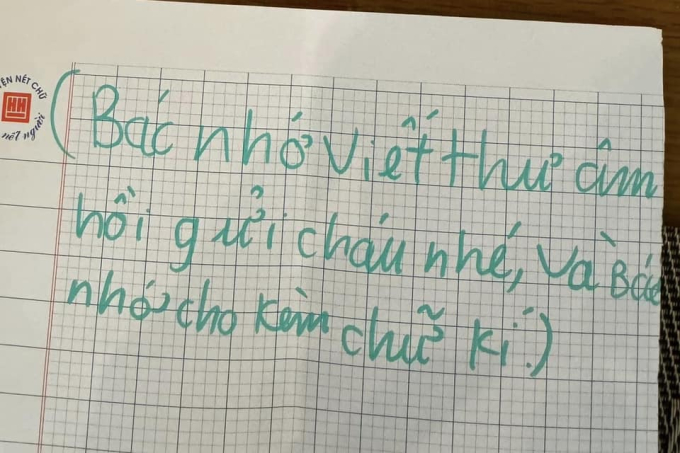 ỆN NÉT CHỮ
HH
nết người
(Bác nhớ viết thư âm
hồi gửi cháu nhé, và Bác
nhớ cho kèm chữ kí.)